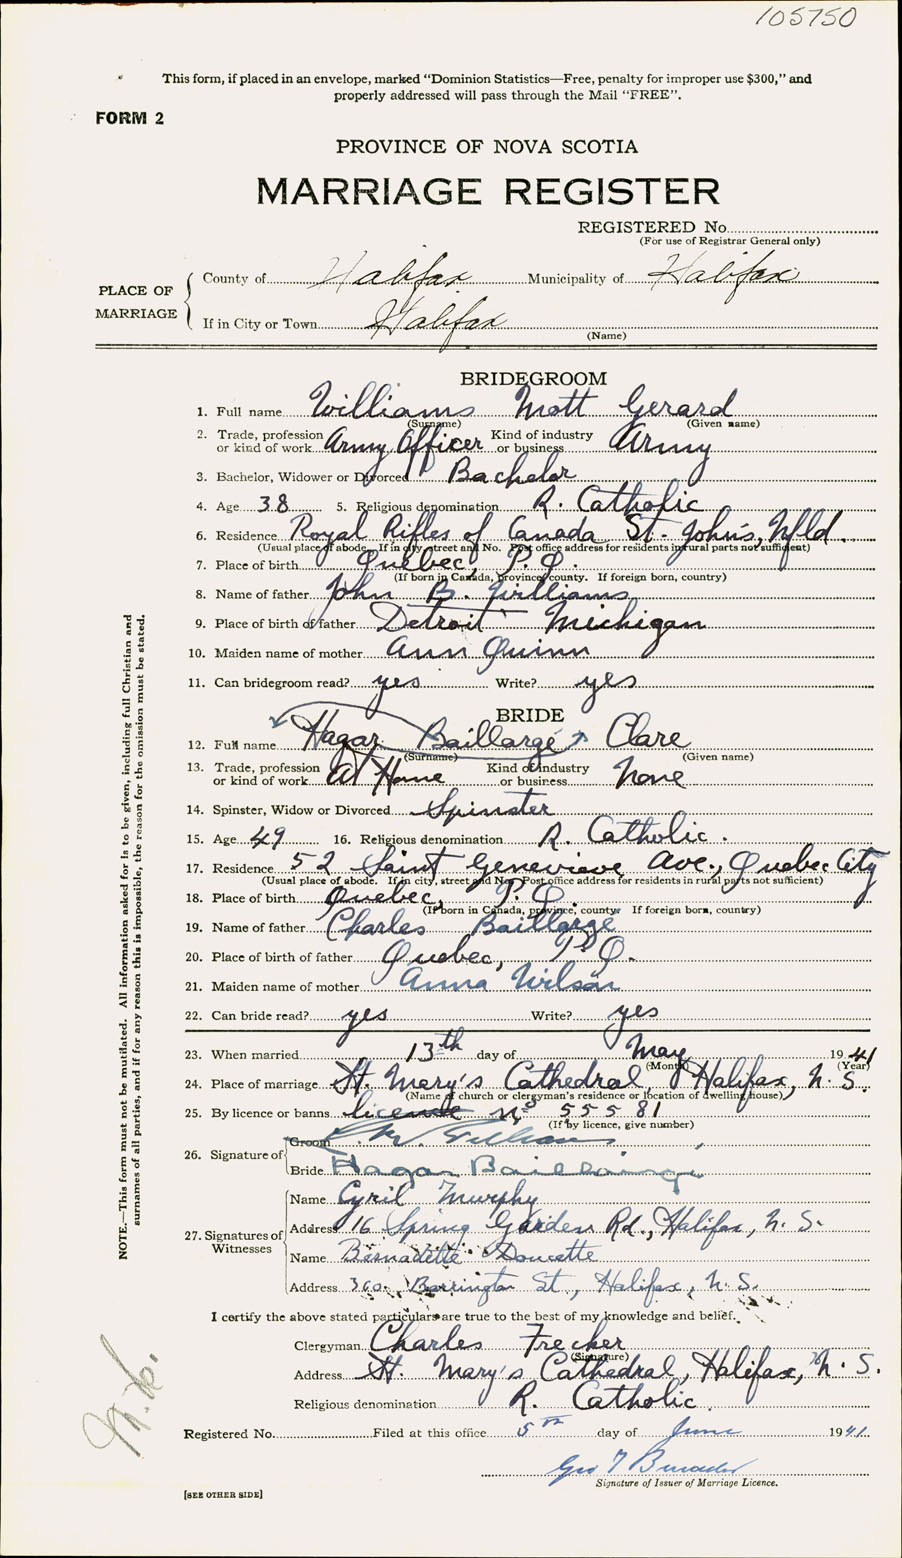 105750
This form, if placed in an envelope, marked "Dominion Statistics—Free, penalty for improper use $300," and
properly addressed will pass through the Mail "FREE".
FORM 2
PROVINCE OF NOVA SCOTIA
MARRIAGE REGISTER
REGISTERED No.
(For use of Registrar General only)
PLACE OF MARRIAGE
County of Halifax Municipality of Halifax
If in City or Town Halifax
(Name)
BRIDEGROOM
1. Full name Williams Mott Gerard
(Surname) (Given name)
2. Trade, profession or kind of work Army Officer Kind of industry or business Army
3. Bachelor, Widower or Divorced Bachelor
4. Age 38 5. Religious denomination R. Catholic
6. Residence Royal Rifles of Canada St. John's, Nfld.
(Usual place of abode. If in city, street and No. Post office address for residents in rural parts not sufficient)
7. Place of birth Quebec, P.Q.
(If born in Canada, province, county. If foreign born, country)
8. Name of father John B. Williams
9. Place of birth of father Detroit Michigan
10. Maiden name of mother Ann Quinn
11. Can bridegroom read? yes Write? yes
BRIDE
12. Full name Hagar Baillargé Clare
(Surname) (Given name)
13. Trade, profession or kind of work At Home Kind of industry or business None
14. Spinster, Widow or Divorced Spinster
15. Age 49 16. Religious denomination R. Catholic.
17. Residence 52 Saint Genevieve Ave., Quebec City
(Usual place of abode. If in city, street and No. Post office address for residents in rural parts not sufficient)
18. Place of birth Quebec, P.Q.
(If born in Canada, province, county. If foreign born, country)
19. Name of father Charles Baillarge
20. Place of birth of father Quebec, P.Q.
21. Maiden name of mother Anna Wilson
22. Can bride read? yes Write? yes
23. When married 13th day of May 1941
(Month) (Year)
24. Place of marriage St. Mary's Cathedral, Halifax, N.S.
(Name of church or clergyman's residence or location of dwelling house)
25. By licence or banns license No 55581
(If by licence, give number)
26. Signature of
Groom
Bride Hagar Baillairgé
27. Signatures of Witnesses
Name Cyril Murphy
Address 16 Spring Garden Rd., Halifax, N.S.
Name Bernadette Doucette
Address 360 Barrington St., Halifax, N.S.
I certify the above stated particulars are true to the best of my knowledge and belief.
Clergyman Charles Frecker
(Signature)
Address St. Mary's Cathedral, Halifax, N.S.
Religious denomination R. Catholic
Registered No. Filed at this office 5th day of June 1941
Geo T
Signature of Issuer of Marriage Licence.
[SEE OTHER SIDE]
NOTE.—This form must not be mutilated. All information asked for is to be given, including full Christian and
surnames of all parties, and if for any reason this is impossible, the reason for the omission must be stated.